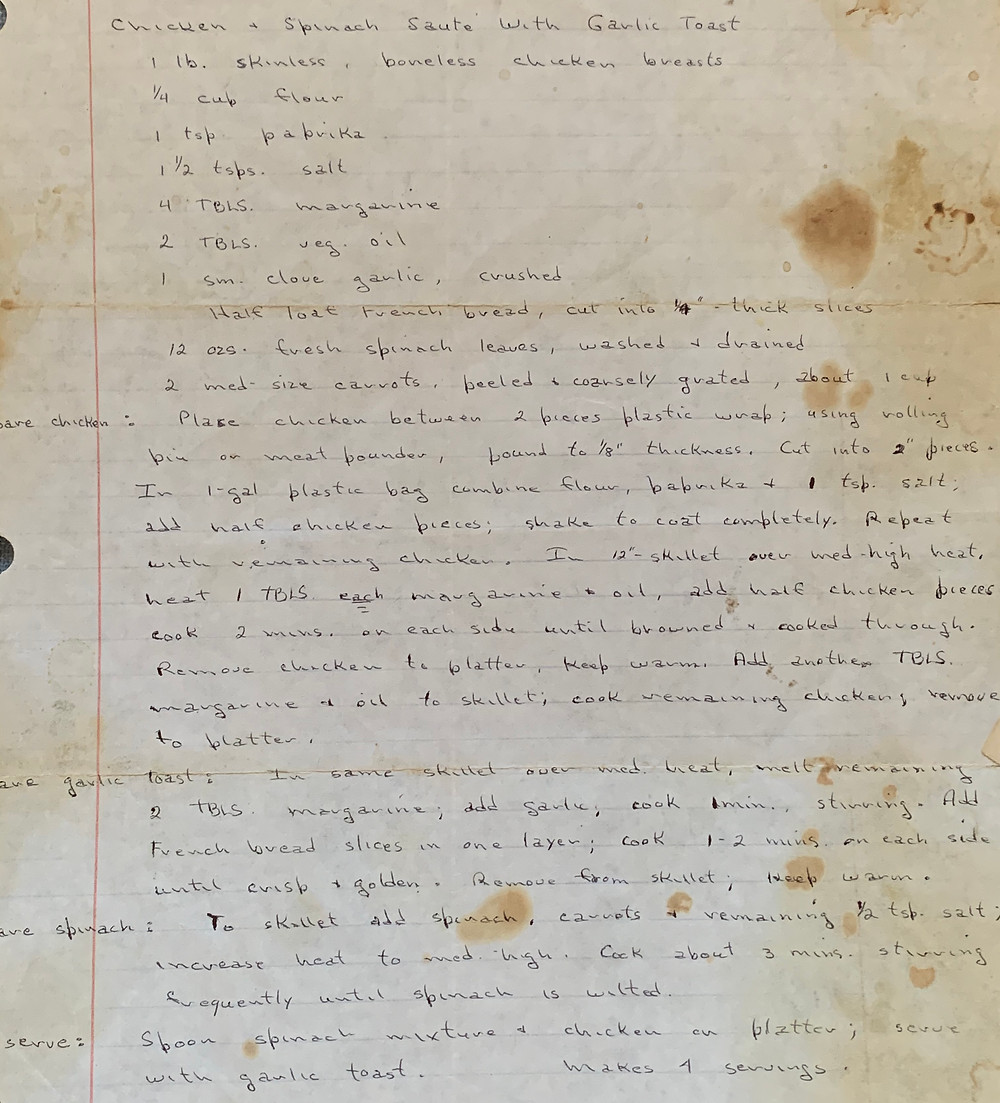 Chicken + Spinach Sauté With Garlic Toast
1 lb. skinless, boneless chicken breasts
1/4 cup flour
1 tsp. paprika
1 1/2 tsps. salt
4 TBLS. margarine
2 TBLS. veg. oil
1 sm. clove garlic, crushed
Half loaf French bread, cut into 1/4" - thick slices
12 ozs. fresh spinach leaves, washed + drained
2 med-size carrots, peeled + coarsely grated, about 1 cup
are chicken: Place chicken between 2 pieces plastic wrap; using rolling
pin or meat pounder, pound to 1/8" thickness. Cut into 2" pieces.
In 1-gal plastic bag combine flour, paprika + 1 tsp. salt;
add half chicken pieces; shake to coat completely. Repeat
with remaining chicken. In 12"-skillet over med-high heat,
heat 1 TBLS. each margarine + oil, add half chicken pieces
cook 2 mins. on each side until browned + cooked through.
Remove chicken to platter, keep warm. Add another TBLS.
margarine + oil to skillet; cook remaining chicken; remove
to platter.
are garlic toast: In same skillet over med. heat, melt remaining
2 TBLS. margarine; add garlic; cook 1 min., stirring. Add
French bread slices in one layer; cook 1-2 mins. on each side
until crisp + golden. Remove from skillet; keep warm.
are spinach: To skillet add spinach, carrots + remaining 1/2 tsp. salt;
increase heat to med. high. Cook about 3 mins. stirring
frequently until spinach is wilted.
serve: Spoon spinach mixture + chicken on platter; serve
with garlic toast. Makes 4 servings.